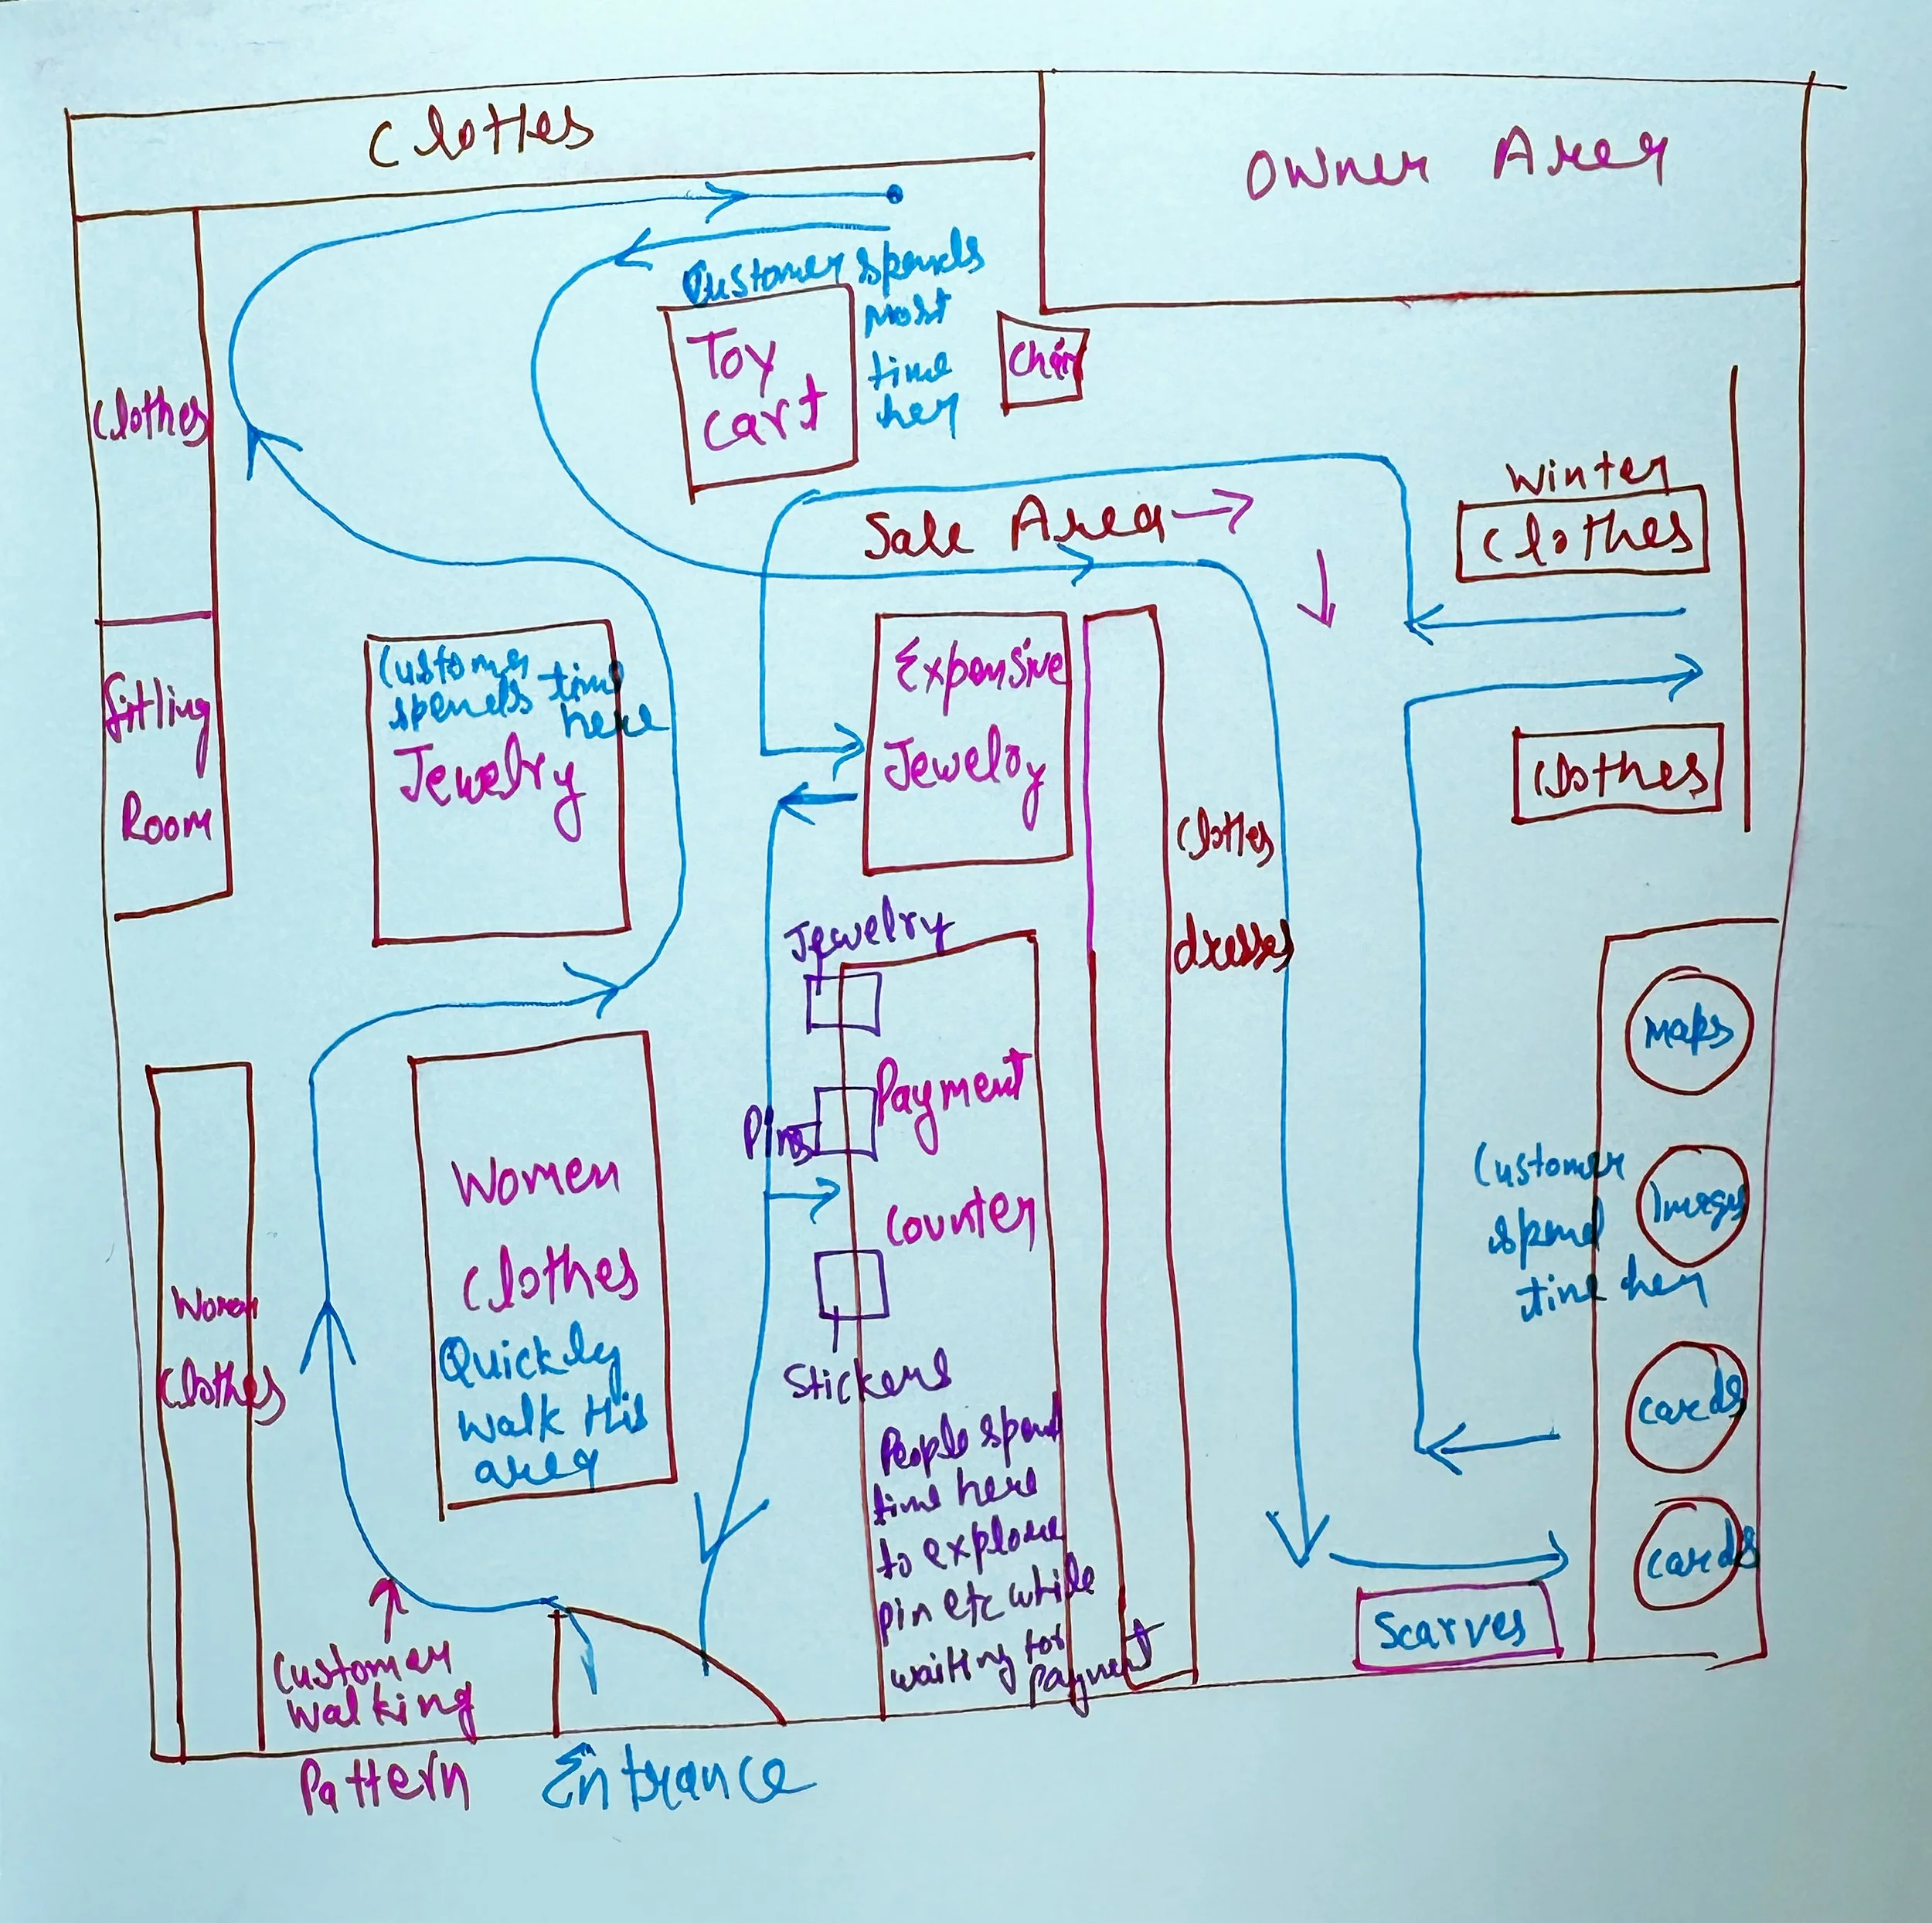 Clothes
Owner Area
Customer spends
most
time
her
Toy
cart
Chair
Clothes
Sale Area
Winter
Clothes
Customer
spends time
here
Jewelry
Expensive
Jewelry
Fitting
Room
Clothes
Clothes
dresses
Jewelry
Maps
Payment
Pins
Counter
Customer
spend
time her
Images
Women
Clothes
Quickly
walk this
area
Women
Clothes
Stickers
cards
People spend
time here
to explore
pin etc while
waiting for
payment
cards
Scarves
Customer
walking
Pattern
Entrance